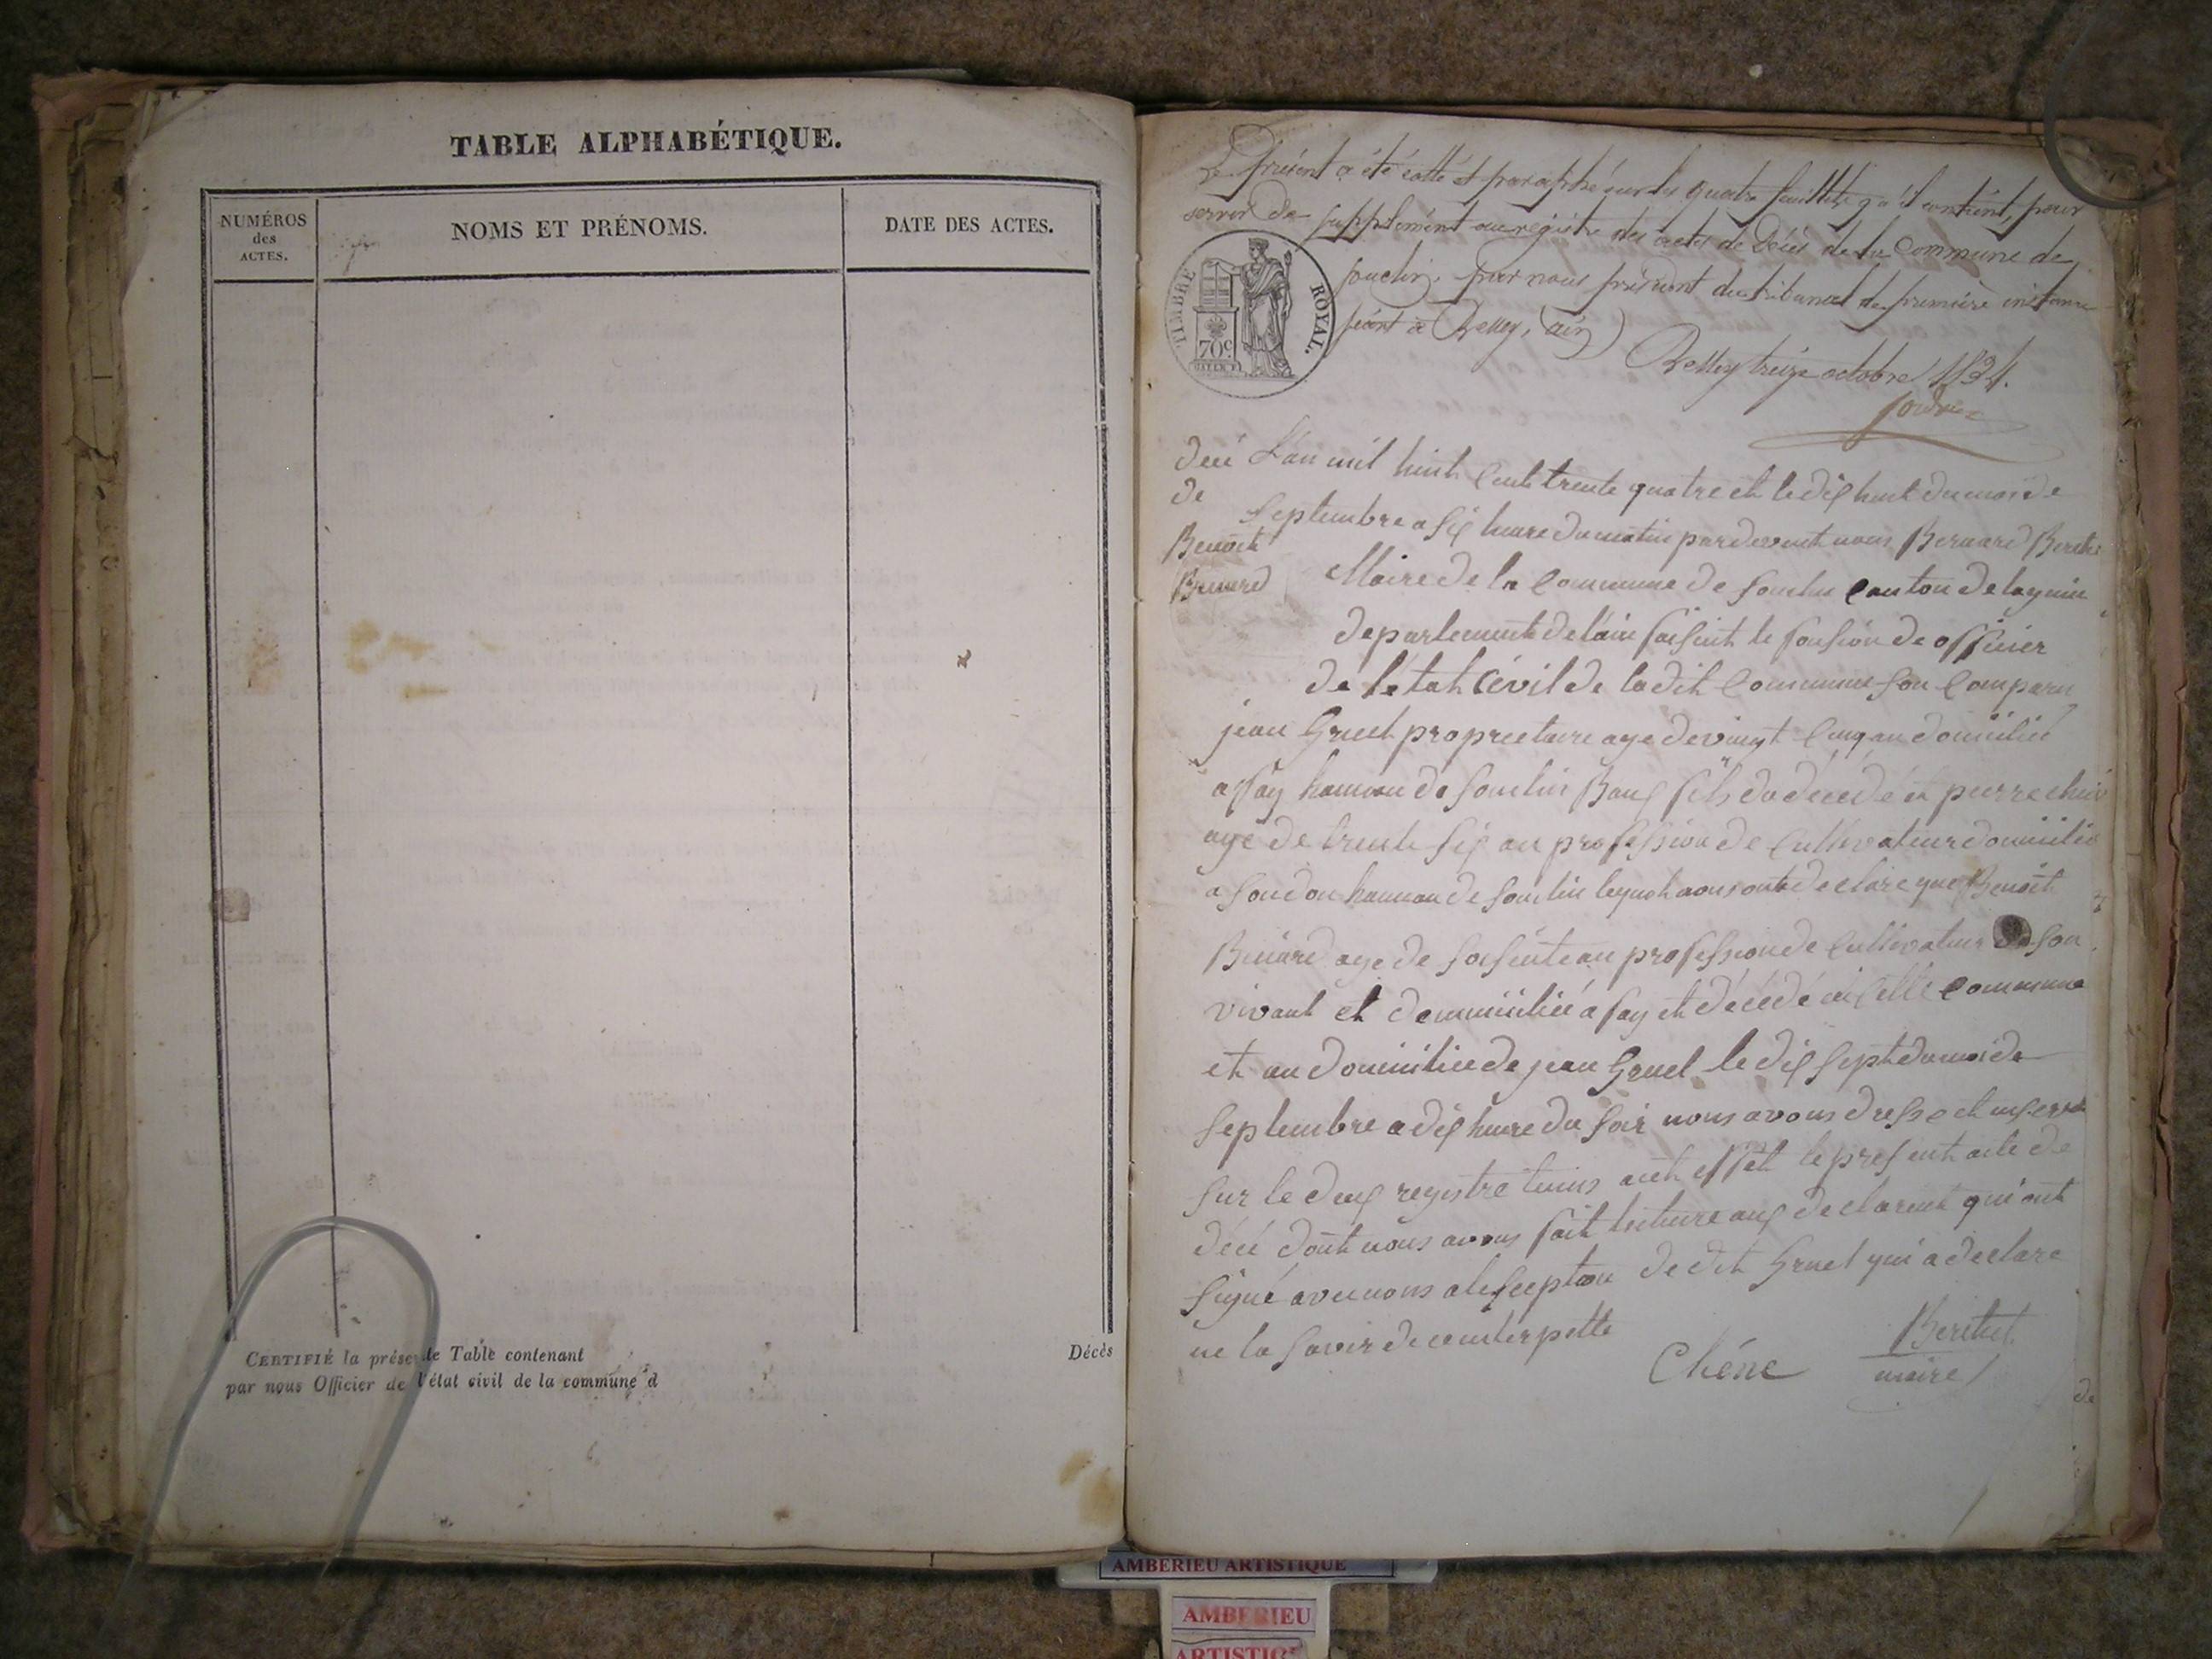 TABLE ALPHABÉTIQUE.
NUMÉROS
des
ACTES.
NOMS ET PRÉNOMS.
DATE DES ACTES.
CERTIFIÉ la présente Table contenant
par nous Officier de l'état civil de la commune d
Décès
Le présent a été cotté et paraphé sur les quatre feuillets qu'il contient, pour
servir de supplément au registre des actes de Décès de la Commune de
souclin, par nous président du tribunal de première instance
séant à Belley, (ain)
Belley treize octobre 1834.
TIMBRE ROYAL.
70c
décé
de
Benoit
L'an mil huit cent trente quatre et le dix huit du mois de
septembre a six heure du matin pardevant nous Bernard
Maire de la Commune de souclin Canton de lagnieu
departement de l'ain faisant le fonsion de officier
de l'etat Cévil de ladit Commune son Comparu
jean Gruel propreetaire age de vingt Cinq an domicilié
a fay hamau de souclin Baux fils du décédé et pierre
age de trente six an profession de Cultivateur domicilié
a soudon hamau de souclin lequels nous onts declare que Benoit
age de soisente an profession de Cultivateur de son
vivant et domicilié a fay et décédé en Cette Commune
et au domicilie de jean Gruel le dix sept du mois de
septembre a dix heure du soir nous avous dresse et
sur le deux registre tenus acet effet le present acte de
décé dont nous avons fait lecture aux declarent qui ont
signé avec nous a lexception de dit Gruel qui a declare
ne la savoir de
Chéne
Berthet
maire
de
AMBERIEU ARTISTIQUE
AMBERIEU